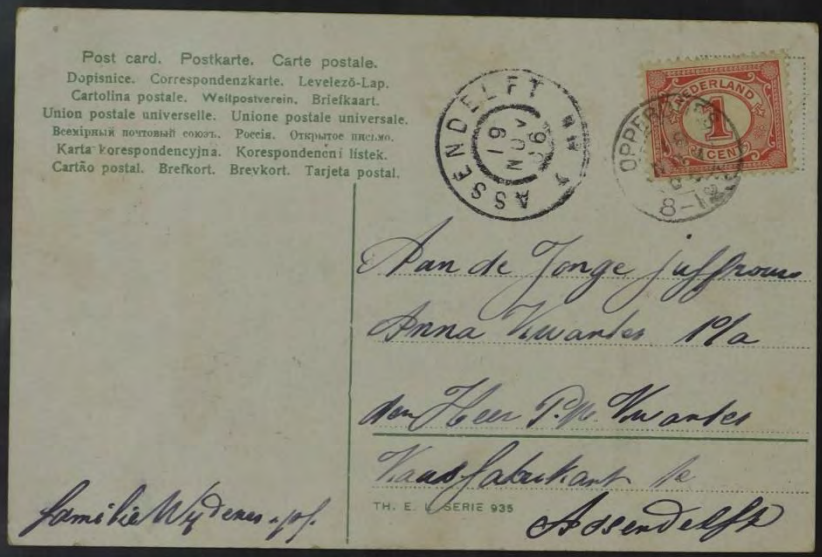 Post card. Postkarte. Carte postale.
Dopisnice. Correspondenzkarte. Levelező-Lap.
Cartolina postale. Weltpostverein. Briefkaart.
Union postale universelle. Unione postale universale.
Всемірный почтовый союзъ. Россія. Открытое письмо.
Karta korespondencyjna. Korespondenční listek.
Cartão postal. Brefkort. Brevkort. Tarjeta postal.
ASSENDELFT
19 NOV 06
NEDERLAND
1
CENT
OPPER
8-
Aan de Jonge juffrouw
Anna Kwantes p/a
den Heer P. Kwantes
Kaasfabrikant te
Assendelft
familie Wijdenes
TH. E. L. SERIE 935